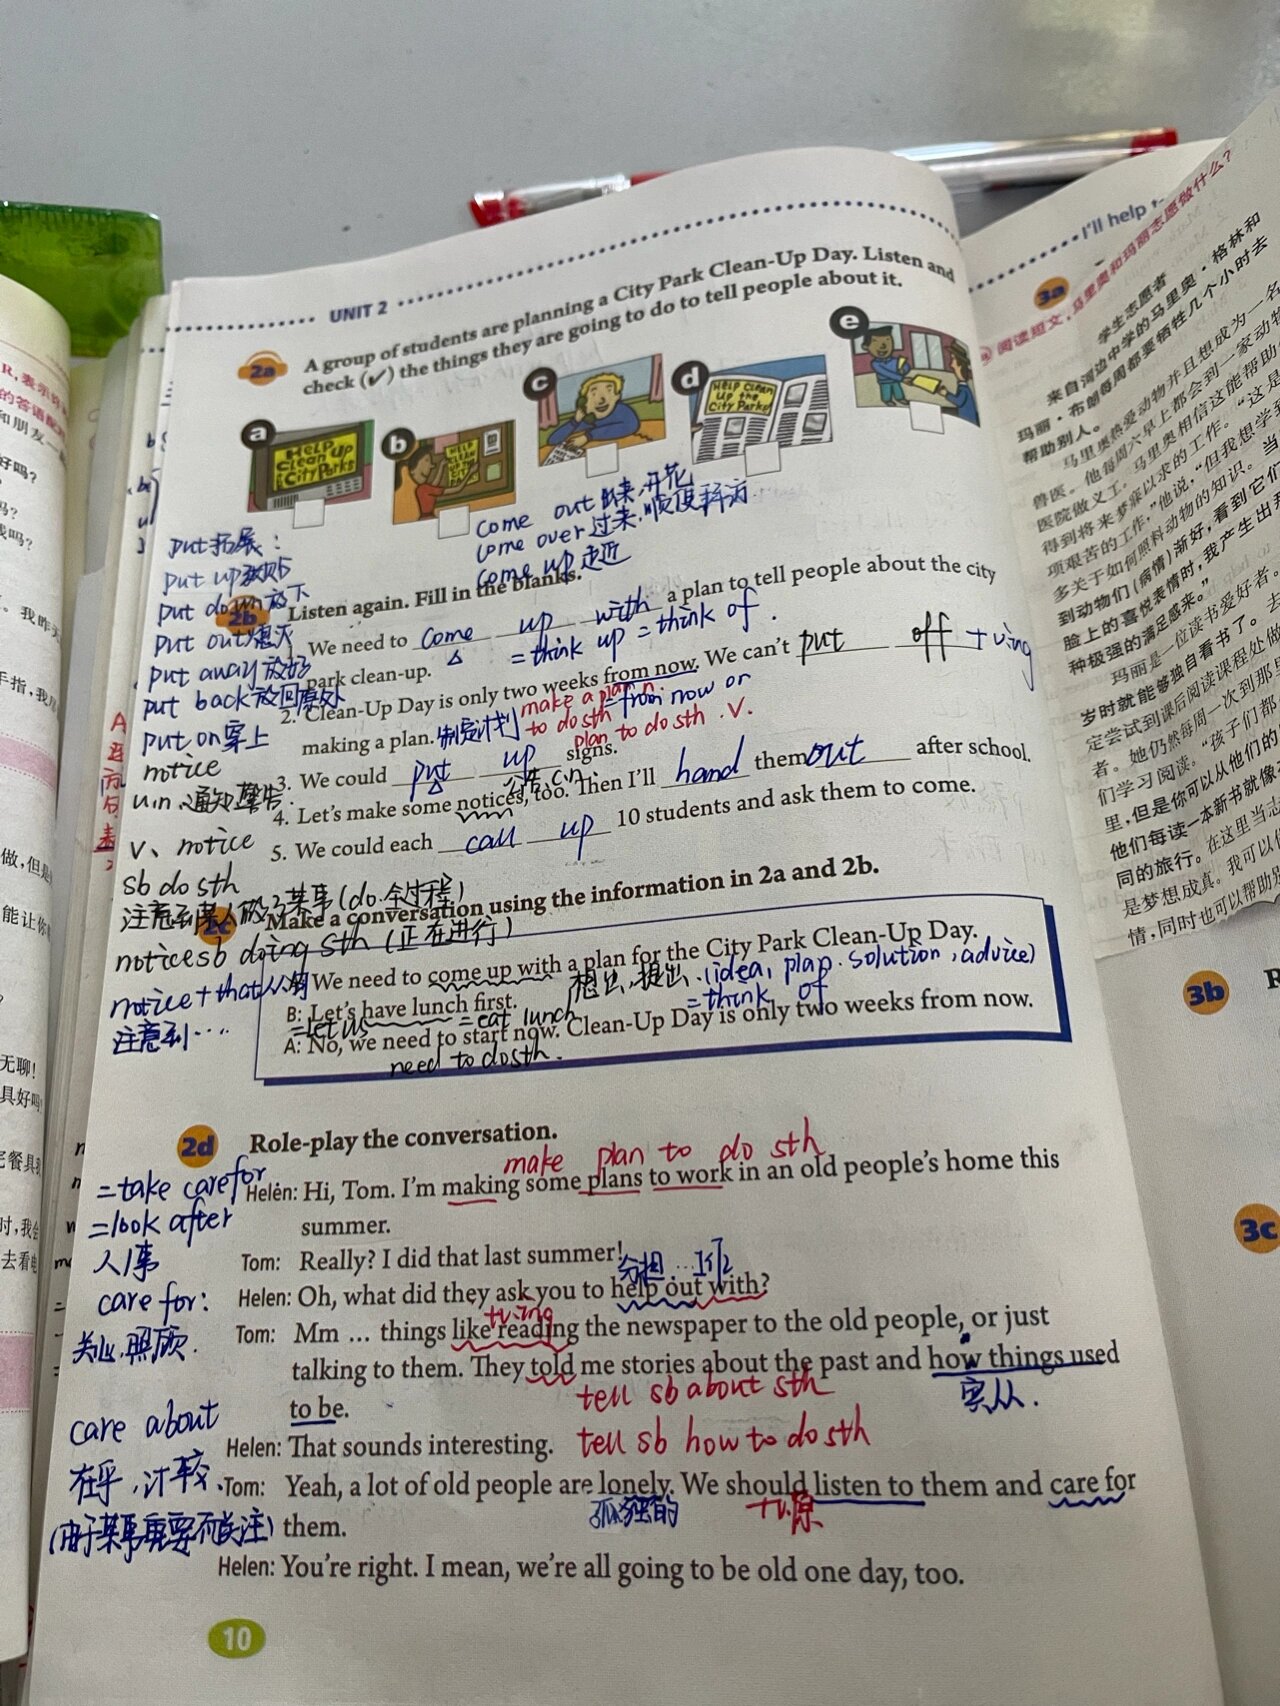 UNIT 2
2a
A group of students are planning a City Park Clean-Up Day. Listen and
check (✓) the things they are going to do to tell people about it.
a
HELP
CLEAN UP
City Parks
b
c
d
HELP CLEAN
UP the
City Parks!
e
come out 出来,开花
come over 过来,顺便拜访
come up 走近
put 拓展:
put up 张贴
put down 放下
put out 熄灭
put away 放好
put back 放回原处
put on 穿上
notice
v、notice
sb do sth
注意到某人做了某事(do.全过程)
notice sb doing sth (正在进行)
notice + that 从句
注意到····
2b
Listen again. Fill in the blanks.
1. We need to come up with a plan to tell people about the city
park clean-up.
= think up = think of.
2. Clean-Up Day is only two weeks from now. We can't put off + ving
making a plan. 制定计划
make a plan
to do sth
= from now on
plan to do sth .V.
3. We could put up signs.
4. Let's make some notices, too. Then I'll hand them out after school.
5. We could each call up 10 students and ask them to come.
2c
Make a conversation using the information in 2a and 2b.
A: We need to come up with a plan for the City Park Clean-Up Day.
想出,提出.(idea, plan. solution, advice)
= think of
B: Let's have lunch first.
= let us = eat lunch
A: No, we need to start now. Clean-Up Day is only two weeks from now.
need to do sth.
2d
Role-play the conversation.
make plan to do sth
Helen: Hi, Tom. I'm making some plans to work in an old people's home this
summer.
Tom: Really? I did that last summer!
分担...工作
Helen: Oh, what did they ask you to help out with?
+ving
Tom: Mm … things like reading the newspaper to the old people, or just
talking to them. They told me stories about the past and how things used
to be.
tell sb about sth
宾从.
Helen: That sounds interesting.
tell sb how to do sth
Tom: Yeah, a lot of old people are lonely. We should listen to them and care for
them.
孤独的
+v.原
Helen: You're right. I mean, we're all going to be old one day, too.
= take care for
= look after
人/事
care for:
关心.照顾.
care about
在乎,计较.
10
I'll help
3a
阅读短文,马里奥和玛丽志愿做什么?
学生志愿者
来自河边中学的马里奥·格林和
玛丽·布朗每周都要牺牲几个小时去
帮助别人。
马里奥热爱动物并且想成为一名
兽医。他每周六早上都会到一家动物
医院做义工。马里奥相信这能帮助他
得到将来梦寐以求的工作。“这是
项艰苦的工作,”他说,“但我想学到
多关于如何照料动物的知识。当
到动物们(病情)渐好,看到它们
脸上的喜悦表情时,我产生出
种极强的满足感来。”
玛丽是一位读书爱好者。
岁时就能够独自看书了。去
定尝试到课后阅读课程处做
者。她仍然每周一次到那里
们学习阅读。“孩子们都
里,但是你可以从他们的
他们每读一本新书就像
同的旅行。在这里当志
是梦想成真。我可以
情,同时也可以帮助别
3b
3c